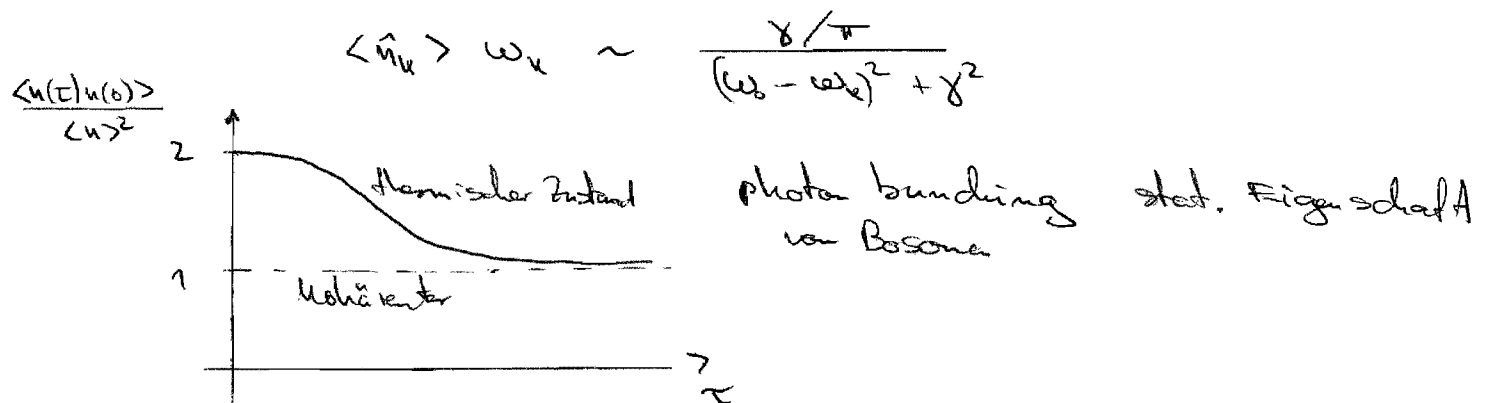 <n̂_k> ω_k ~ γ/π / ((ω_0 - ω_k)² + γ²)
<n(τ)n(0)> / <n>²
2
thermischer Zustand
photon bunching stat. Eigenschaft
von Bosonen
1
kohärenter
τ